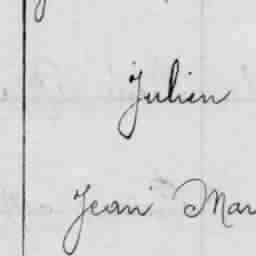 Julien
Jean Mar